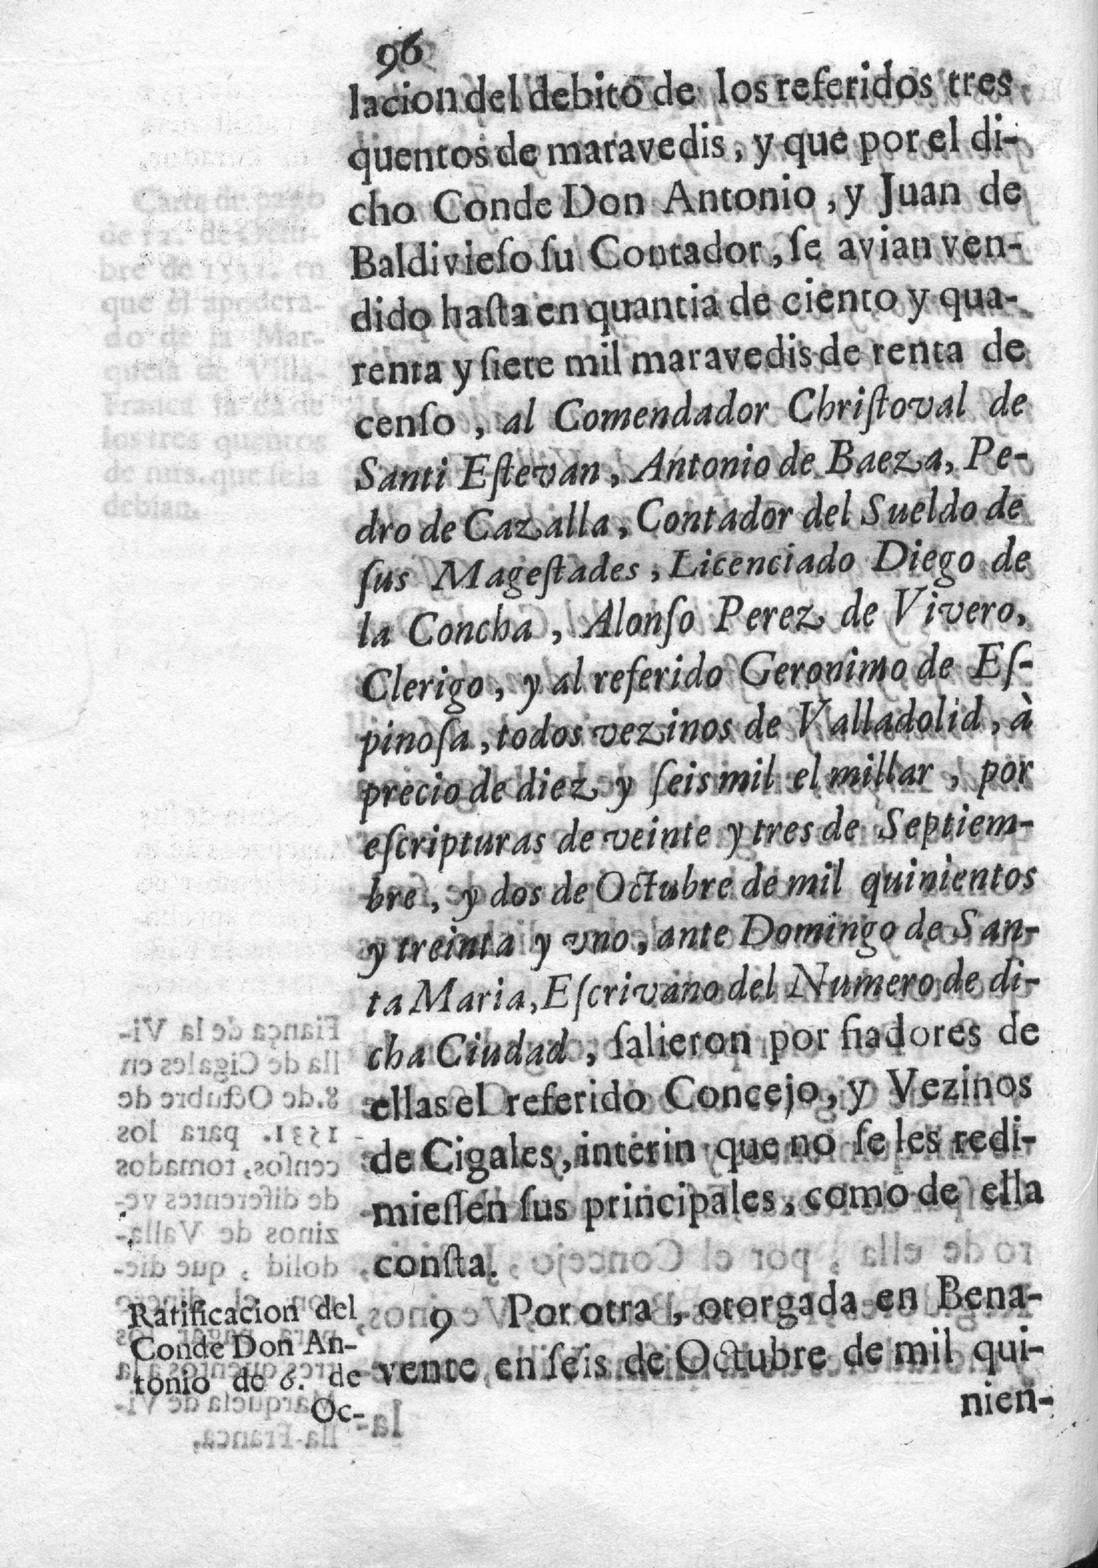 96
lacion del debito de los referidos tres
quentos de maravedis, y que por el di-
cho Conde Don Antonio, y Juan de
Baldivieſo ſu Contador, ſe avian ven-
dido haſta en quantia de ciento y qua-
renta y ſiete mil maravedis de renta de
cenſo, al Comendador Chriſtoval de
Santi Eſtevan, Antonio de Baeza, Pe-
dro de Cazalla, Contador del Sueldo de
ſus Mageſtades, Licenciado Diego de
la Concha, Alonſo Perez de Vivero,
Clerigo, y al referido Geronimo de Eſ-
pinoſa, todos vezinos de Valladolid, à
precio de diez y ſeis mil el millar, por
eſcripturas de veinte y tres de Septiem-
bre, y dos de Octubre de mil quinientos
y treinta y vno, ante Domingo de San-
ta Maria, Eſcrivano del Numero de di-
cha Ciudad, ſalieron por fiadores de
ellas el referido Concejo, y Vezinos
de Cigales, interin que no ſe les redi-
mieſſen ſus principales, como de ella
conſta.
9 Por otra, otorgada en Bena-
vente en ſeis de Octubre de mil qui-
nien-
Ratificacion del
Conde Don An-
tonio de 6. de
Oc-